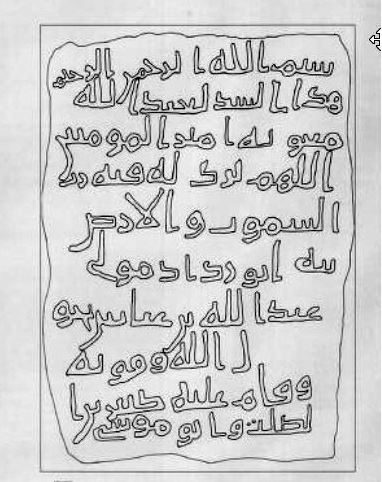 بسم الله الرحمن الرحيم
هذا السد لعبد الله
معويه امير المومنين
اللهم برك له فيه رب
السموت والارض
ابو رداد مولى
عبد الله بن عباس بحو
ل الله وقوته
وقام عليه كثير بن ا
لصلت وابو موسى